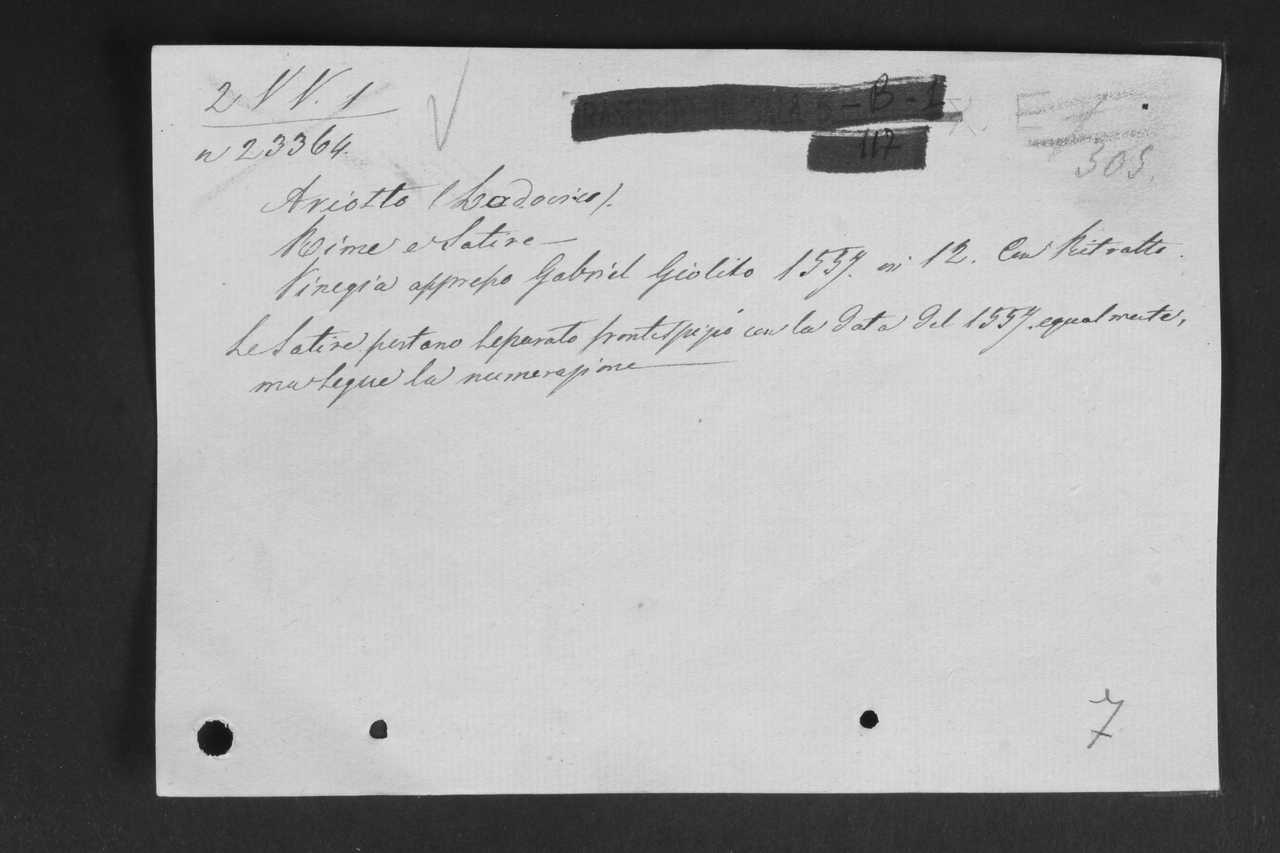 2 VV. 1
n 23364.
TRASFERITO IN SALA B - B - 1
117
305.
Ariosto (Lodovico).
Rime e Satire —
Vinegia appresso Gabriel Giolito 1557. in 12. Con Ritratto.
Le Satire portano separato frontespizio con la data del 1557. egualmente,
ma segue la numerazione
7